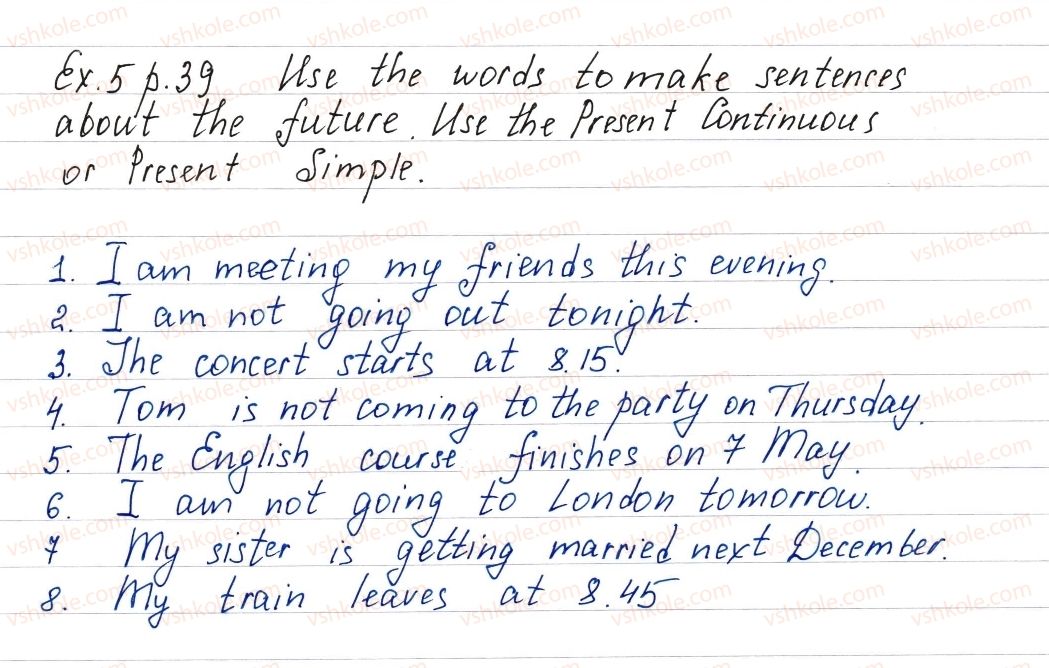 Ex. 5 p. 39 Use the words to make sentences
about the future. Use the Present Continuous
or Present Simple.
1. I am meeting my friends this evening.
2. I am not going out tonight.
3. The concert starts at 8.15.
4. Tom is not coming to the party on Thursday.
5. The English course finishes on 7 May.
6. I am not going to London tomorrow.
7 My sister is getting married next December.
8. My train leaves at 8.45